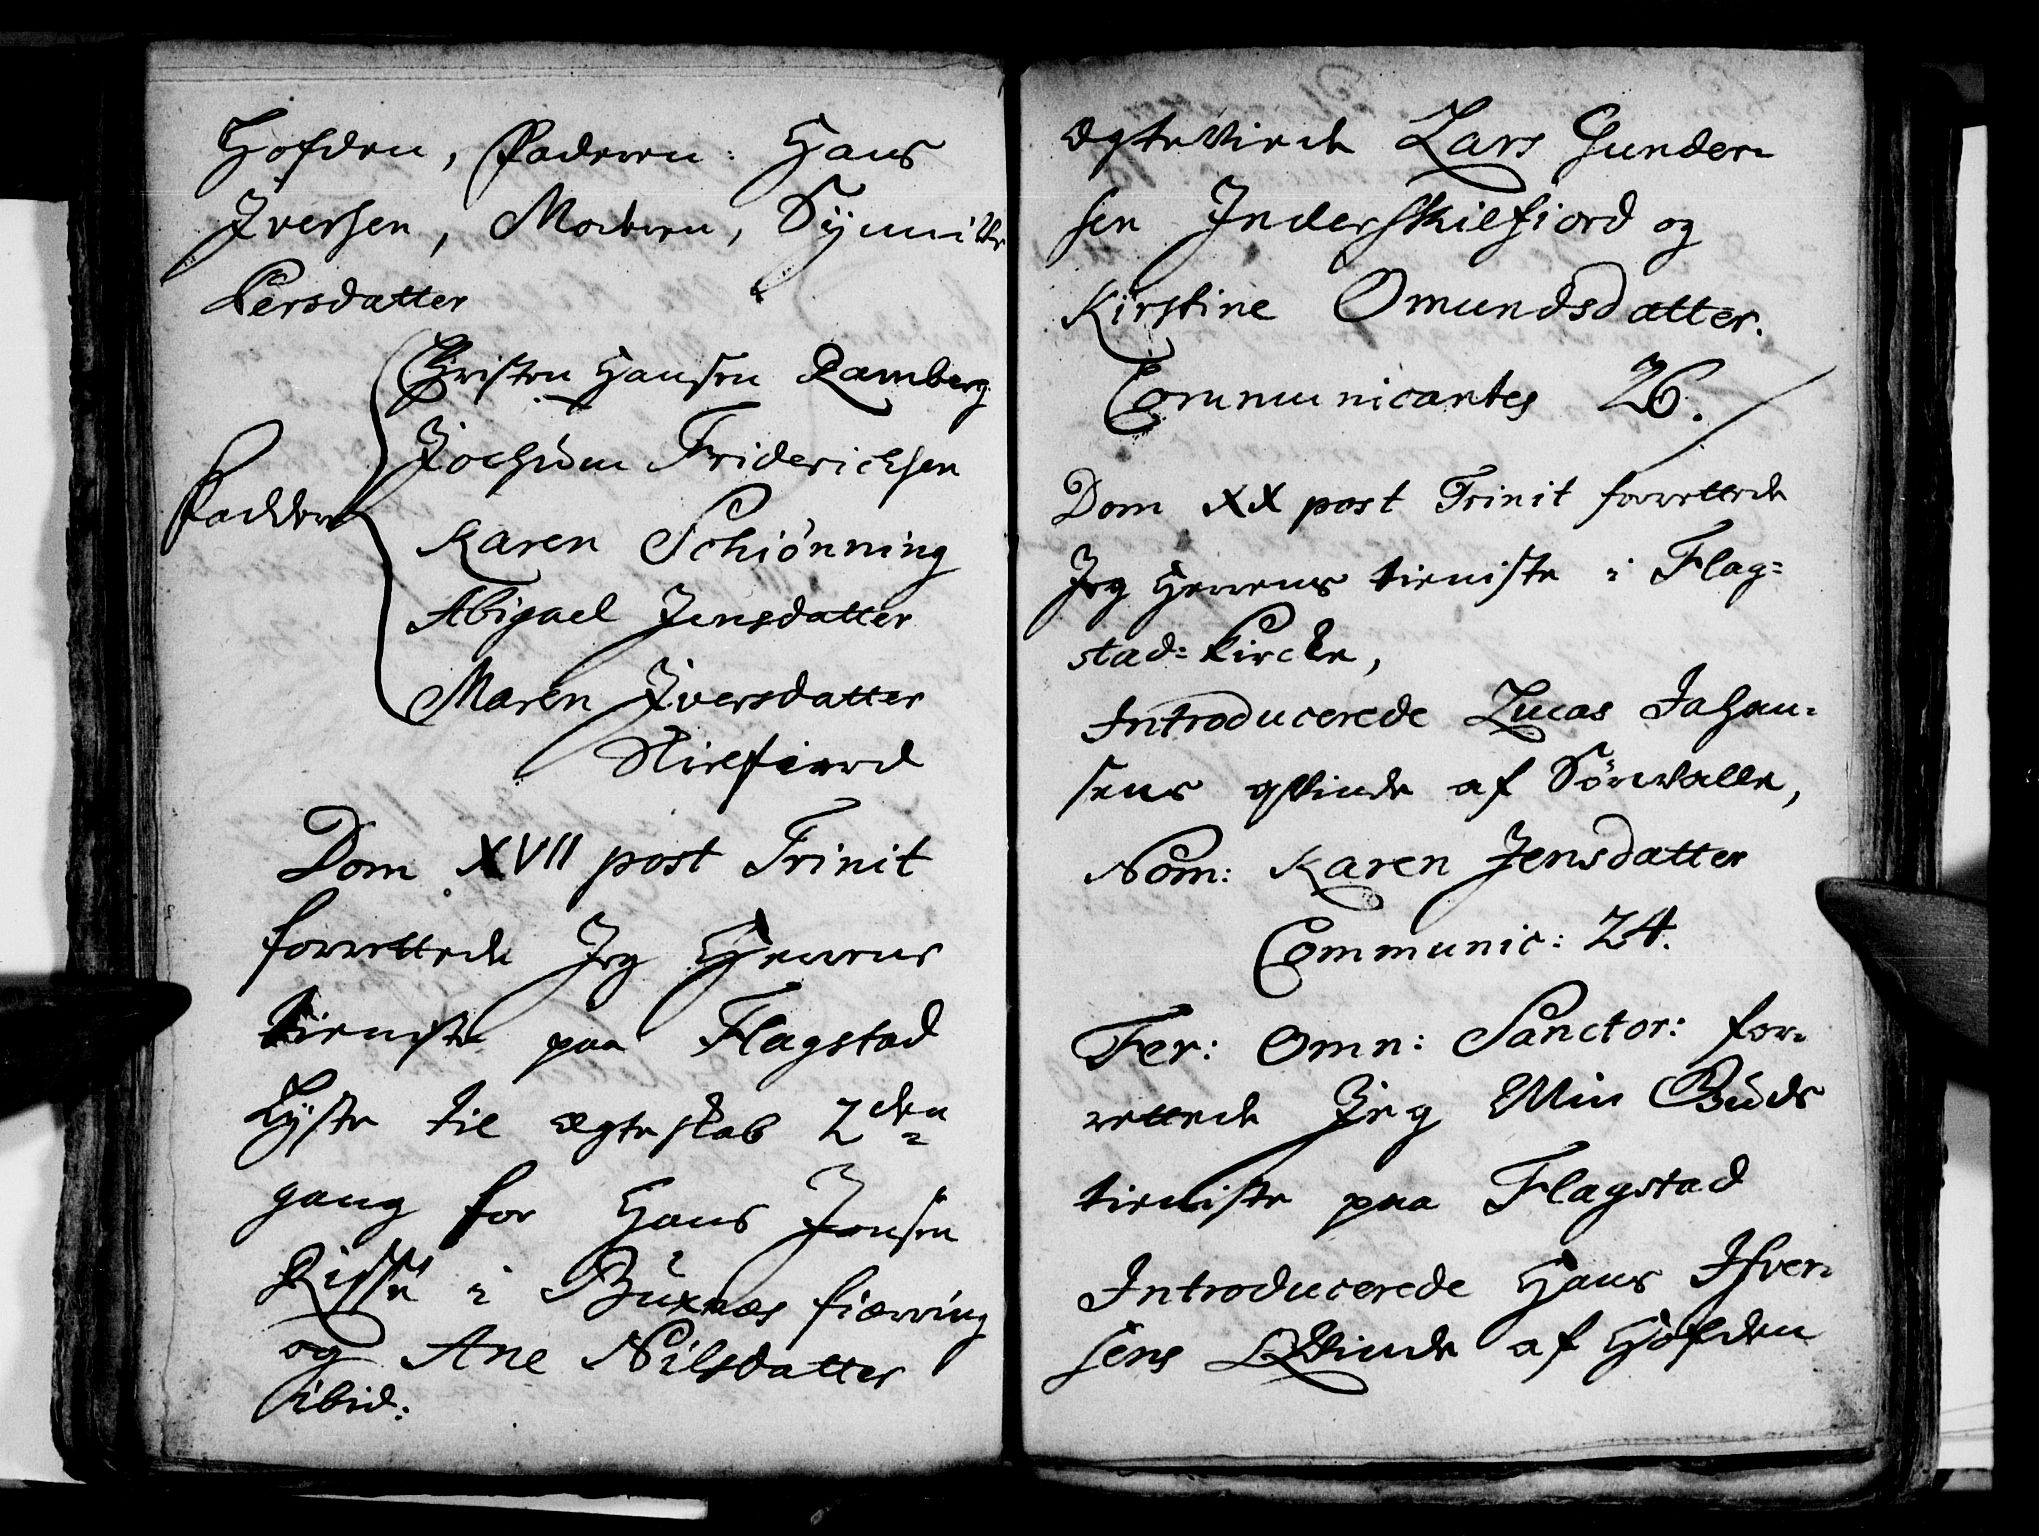 Hofden, Faderen: Hans
Iversen, Moderen, Synnikke
Persdatter
Christen Hansen Ramberg
Jochum Friderichsen
Fadder
Karen Schiønning
Abigael Jensdatter
Maren Iversdatter
Skielfiord
Dom XVII post Trinit
forrettede Jeg Herrens
tieniste paa Flagstad
Lyste til ægteskab 2den
gang for Hans Jensen
i Buxnæs fiærring
og Ane Nilsdatter
ibid:
ægteviede Lars Gunder-
sen Inderskielfiord og
Kirstine Omundsdatter.
Communicantes 26.
Dom XX post Trinit forrettede
Jeg Herrens tieniste i Flag=
stad= Kircke,
Introducerede Lucas Johan=
sens qvinde af Sørwalle,
Nom: Karen Jensdatter
Communic: 24.
Fer: Omn: Sanctor: for-
rettede Jeg Min Guds
tieniste paa Flagstad
Introducerede Hans Ifver-
sens Qvinde af Hofden